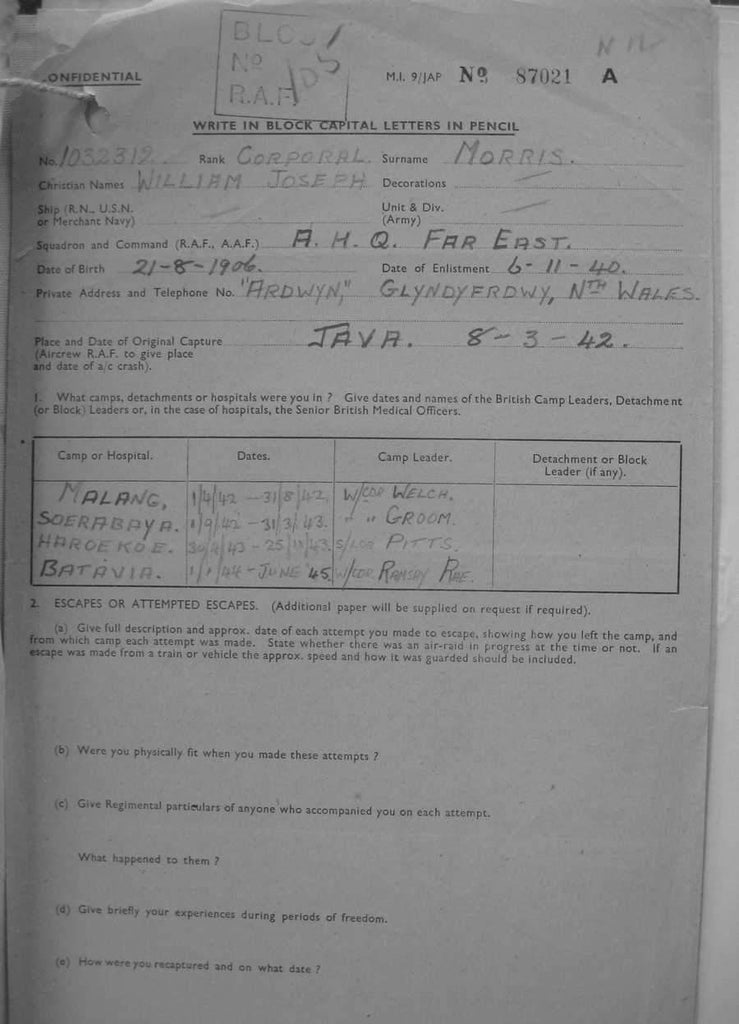 BLOCK
No 105
R.A.F.
CONFIDENTIAL
M.I. 9/JAP No 87021 A
WRITE IN BLOCK CAPITAL LETTERS IN PENCIL
No. 1032312. Rank CORPORAL. Surname MORRIS.
Christian Names WILLIAM JOSEPH Decorations —
Ship (R.N., U.S.N. or Merchant Navy) — Unit & Div. (Army) —
Squadron and Command (R.A.F., A.A.F.) A. H. Q. FAR EAST.
Date of Birth 21-8-1906. Date of Enlistment 6-11-40.
Private Address and Telephone No. "ARDWYN," GLYNDYFRDWY, NTH WALES.
Place and Date of Original Capture JAVA. 8-3-42.
(Aircrew R.A.F. to give place
and date of a/c crash).
1. What camps, detachments or hospitals were you in ? Give dates and names of the British Camp Leaders, Detachment
(or Block) Leaders or, in the case of hospitals, the Senior British Medical Officers.
Camp or Hospital. Dates. Camp Leader. Detachment or Block Leader (if any).
MALANG, 1/4/42 - 31/8/42. W/CDR WELCH.
SOERABAYA. 1/9/42 - 31/3/43. " " GROOM.
HAROEKOE. 25/11/43. PITTS.
BATAVIA. 1/1/44 - JUNE 45. W/CDR RAMSAY RAE.
2. ESCAPES OR ATTEMPTED ESCAPES. (Additional paper will be supplied on request if required).
(a) Give full description and approx. date of each attempt you made to escape, showing how you left the camp, and
from which camp each attempt was made. State whether there was an air-raid in progress at the time or not. If an
escape was made from a train or vehicle the approx. speed and how it was guarded should be included.
(b) Were you physically fit when you made these attempts ?
(c) Give Regimental particulars of anyone who accompanied you on each attempt.
What happened to them ?
(d) Give briefly your experiences during periods of freedom.
(e) How were you recaptured and on what date ?